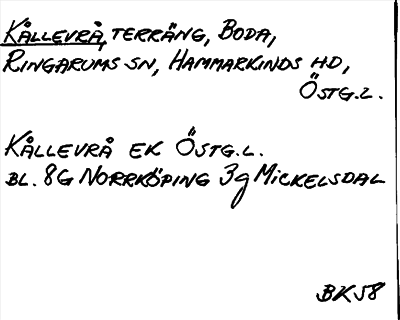 KÅLLEVRÅ, TERRÄNG, BODA,
RINGARUMS SN, HAMMARKINDS HD,
ÖSTG.L.
KÅLLEVRÅ EK ÖSTG.L.
BL. 8G NORRKÖPING 3g MICKELSDAL
BK58